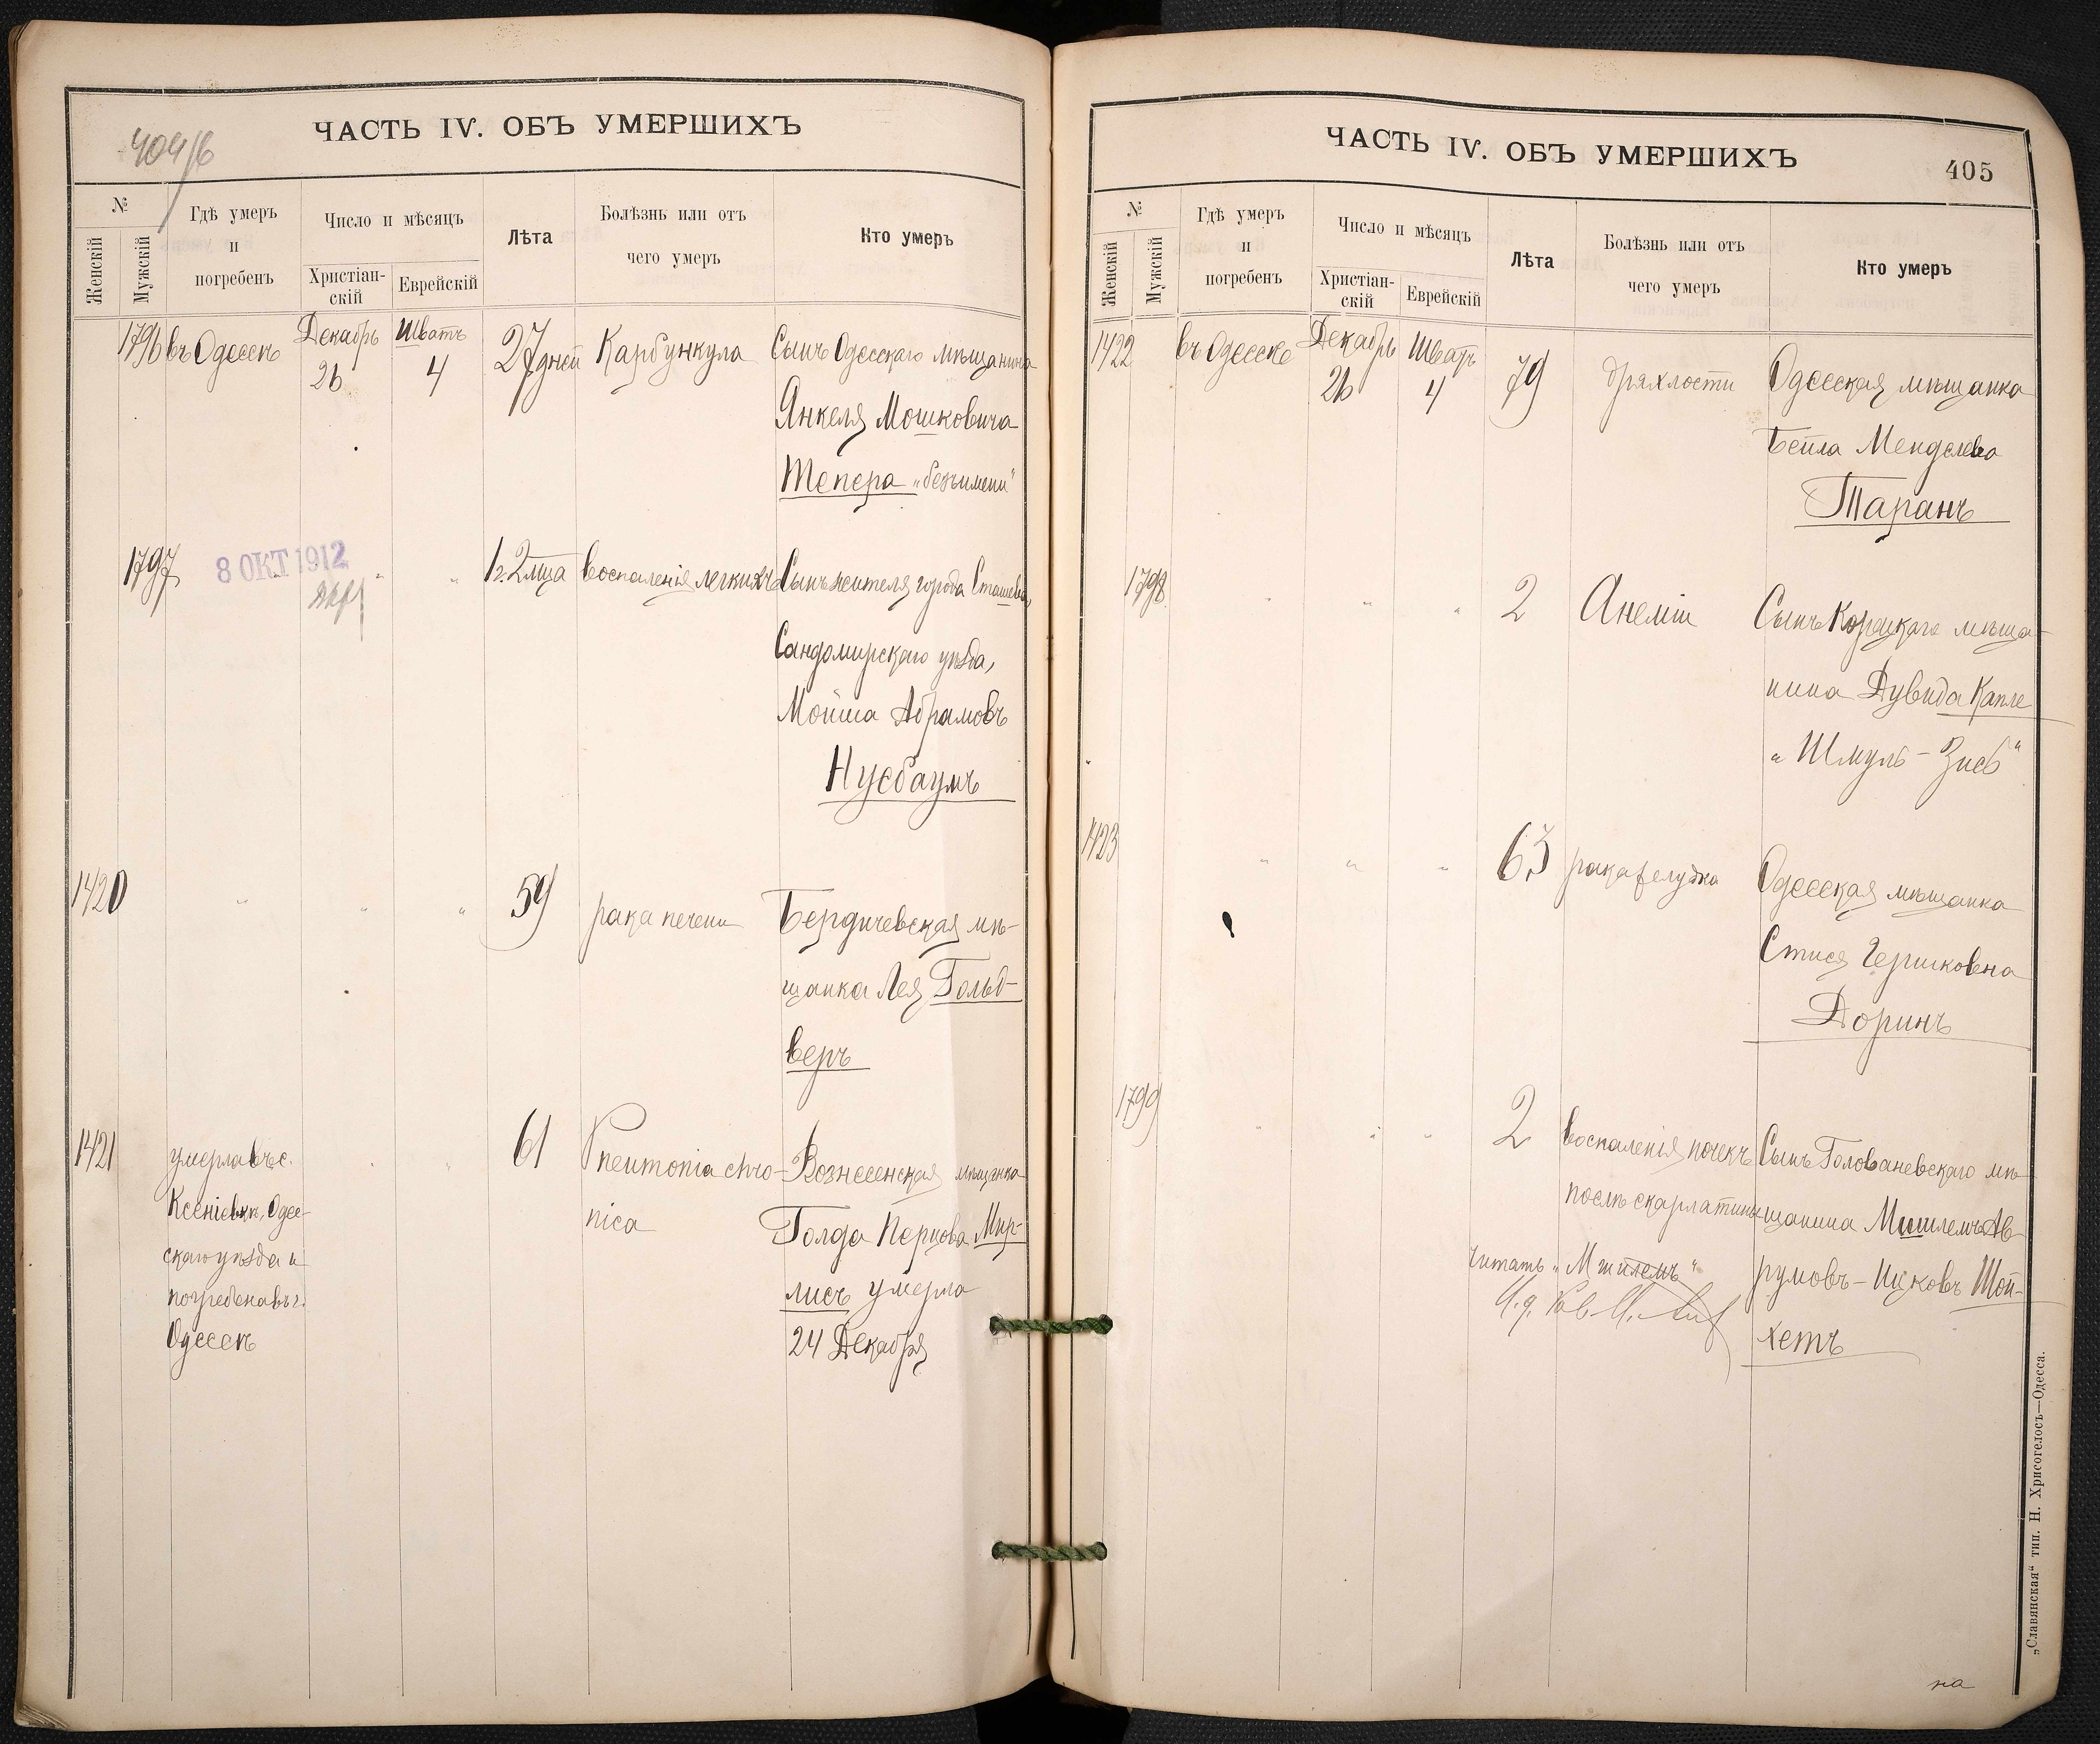 404/б
ЧАСТЬ IV. ОБЪ УМЕРШИХЪ
№
Женскій
Мужскій
Гдѣ умеръ
и
погребенъ
Число и мѣсяцъ
Христіан-
скій
Еврейскій
Лѣта
Болѣзнь или отъ
чего умеръ
Кто умеръ
1796 въ Одессѣ Декабрь 26 Шватъ 4 27 дней Карбункула Сынъ Одесскаго мѣщанина
Янкеля Мошковича
Тепера „безъимени“
1797 " " 1 г. 2 мца воспаленія легкихъ Сынъ жителя города Сташева,
8 ОКТ 1912
Сандомирскаго уѣзда,
Мойша Абрамовъ
Нусбаумъ
1420 " " " 59 рака печени Бердичевская мѣ-
щанка Лея Гольд-
веръ
1421 умерла въ с. " " 61 Pneumonia chro- Вознесенская мѣщанка
Ксеніевкѣ, Одес- nica Голда Перцова Мир-
скаго уѣзда и лисъ умерла
погребена въ г. 24 Декабря
Одессѣ
ЧАСТЬ IV. ОБЪ УМЕРШИХЪ
405
№
Женскій
Мужскій
Гдѣ умеръ
и
погребенъ
Число и мѣсяцъ
Христіан-
скій
Еврейскій
Лѣта
Болѣзнь или отъ
чего умеръ
Кто умеръ
1422 въ Одессе Декабрь 26 Шватъ 4 79 дряхлости Одесская мѣщанка
Бейла Менделева
Таранъ
1798 " " " 2 Анеміи Сынъ Корецкаго мѣща-
нина Дувида Капле
„Шмуль-Зисъ“
1423 " " " 63 рака желудка Одесская мѣщанка
Стися Гершковна
Доринъ
1799 " " " 2 воспаленія почекъ Сынъ Голованевскаго мѣ-
послѣ скарлатины щанина Мишлемъ Ав-
читать „Мшилемъ“ румовъ-Ицковъ Шой-
хетъ
на
„Славянская“ тип. Н. Хрисогелосъ—Одесса.